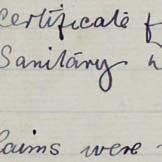 certificate
Sanitary
laims were